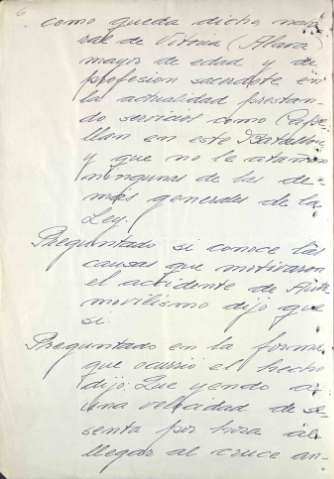 6
como queda dicho natu
ral de Vitoria (Alava)
mayor de edad y de
profesion sacerdote en
la actualidad prestan-
do servicios como Cape
llan en este Batallon
y que no le atañen
ningunas de las de-
más generales de la
Ley.
Preguntado si conoce las
causas que motivaron
el accidente de Auto
movilismo dijo que
si.
Preguntado en la forma
que ocurrió el hecho
dijo: Que yendo a
una velocidad de se-
senta por hora al
llegar al cruce an-